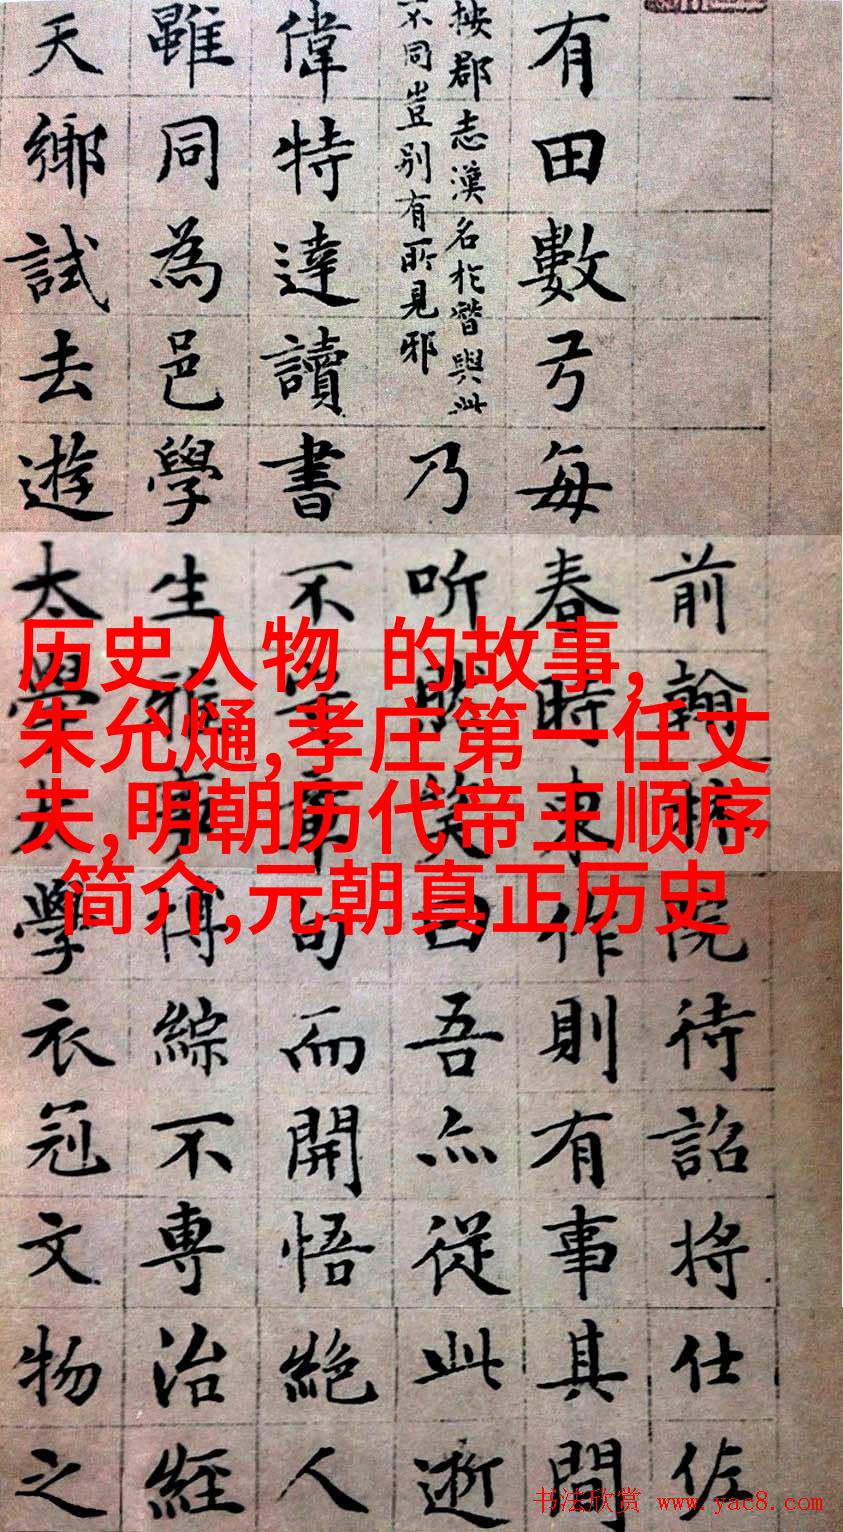 历史人物 的故事,
朱允熥,孝庄第一任丈
夫,明朝历代帝王顺序
简介,元朝真正历史
前翰林院待詔將仕佐
有田數弓每春時東作則有事其間
按郡志漢名於簪與此
不同豈别有所見邪
乃听然笑曰吾亦從此逝
偉特達讀書不章句而開悟絕人
雖同為邑學生雅事博綜不專治經
天鄉試去遊太學太學衣冠文物之
书法欣赏 www.yac8.com